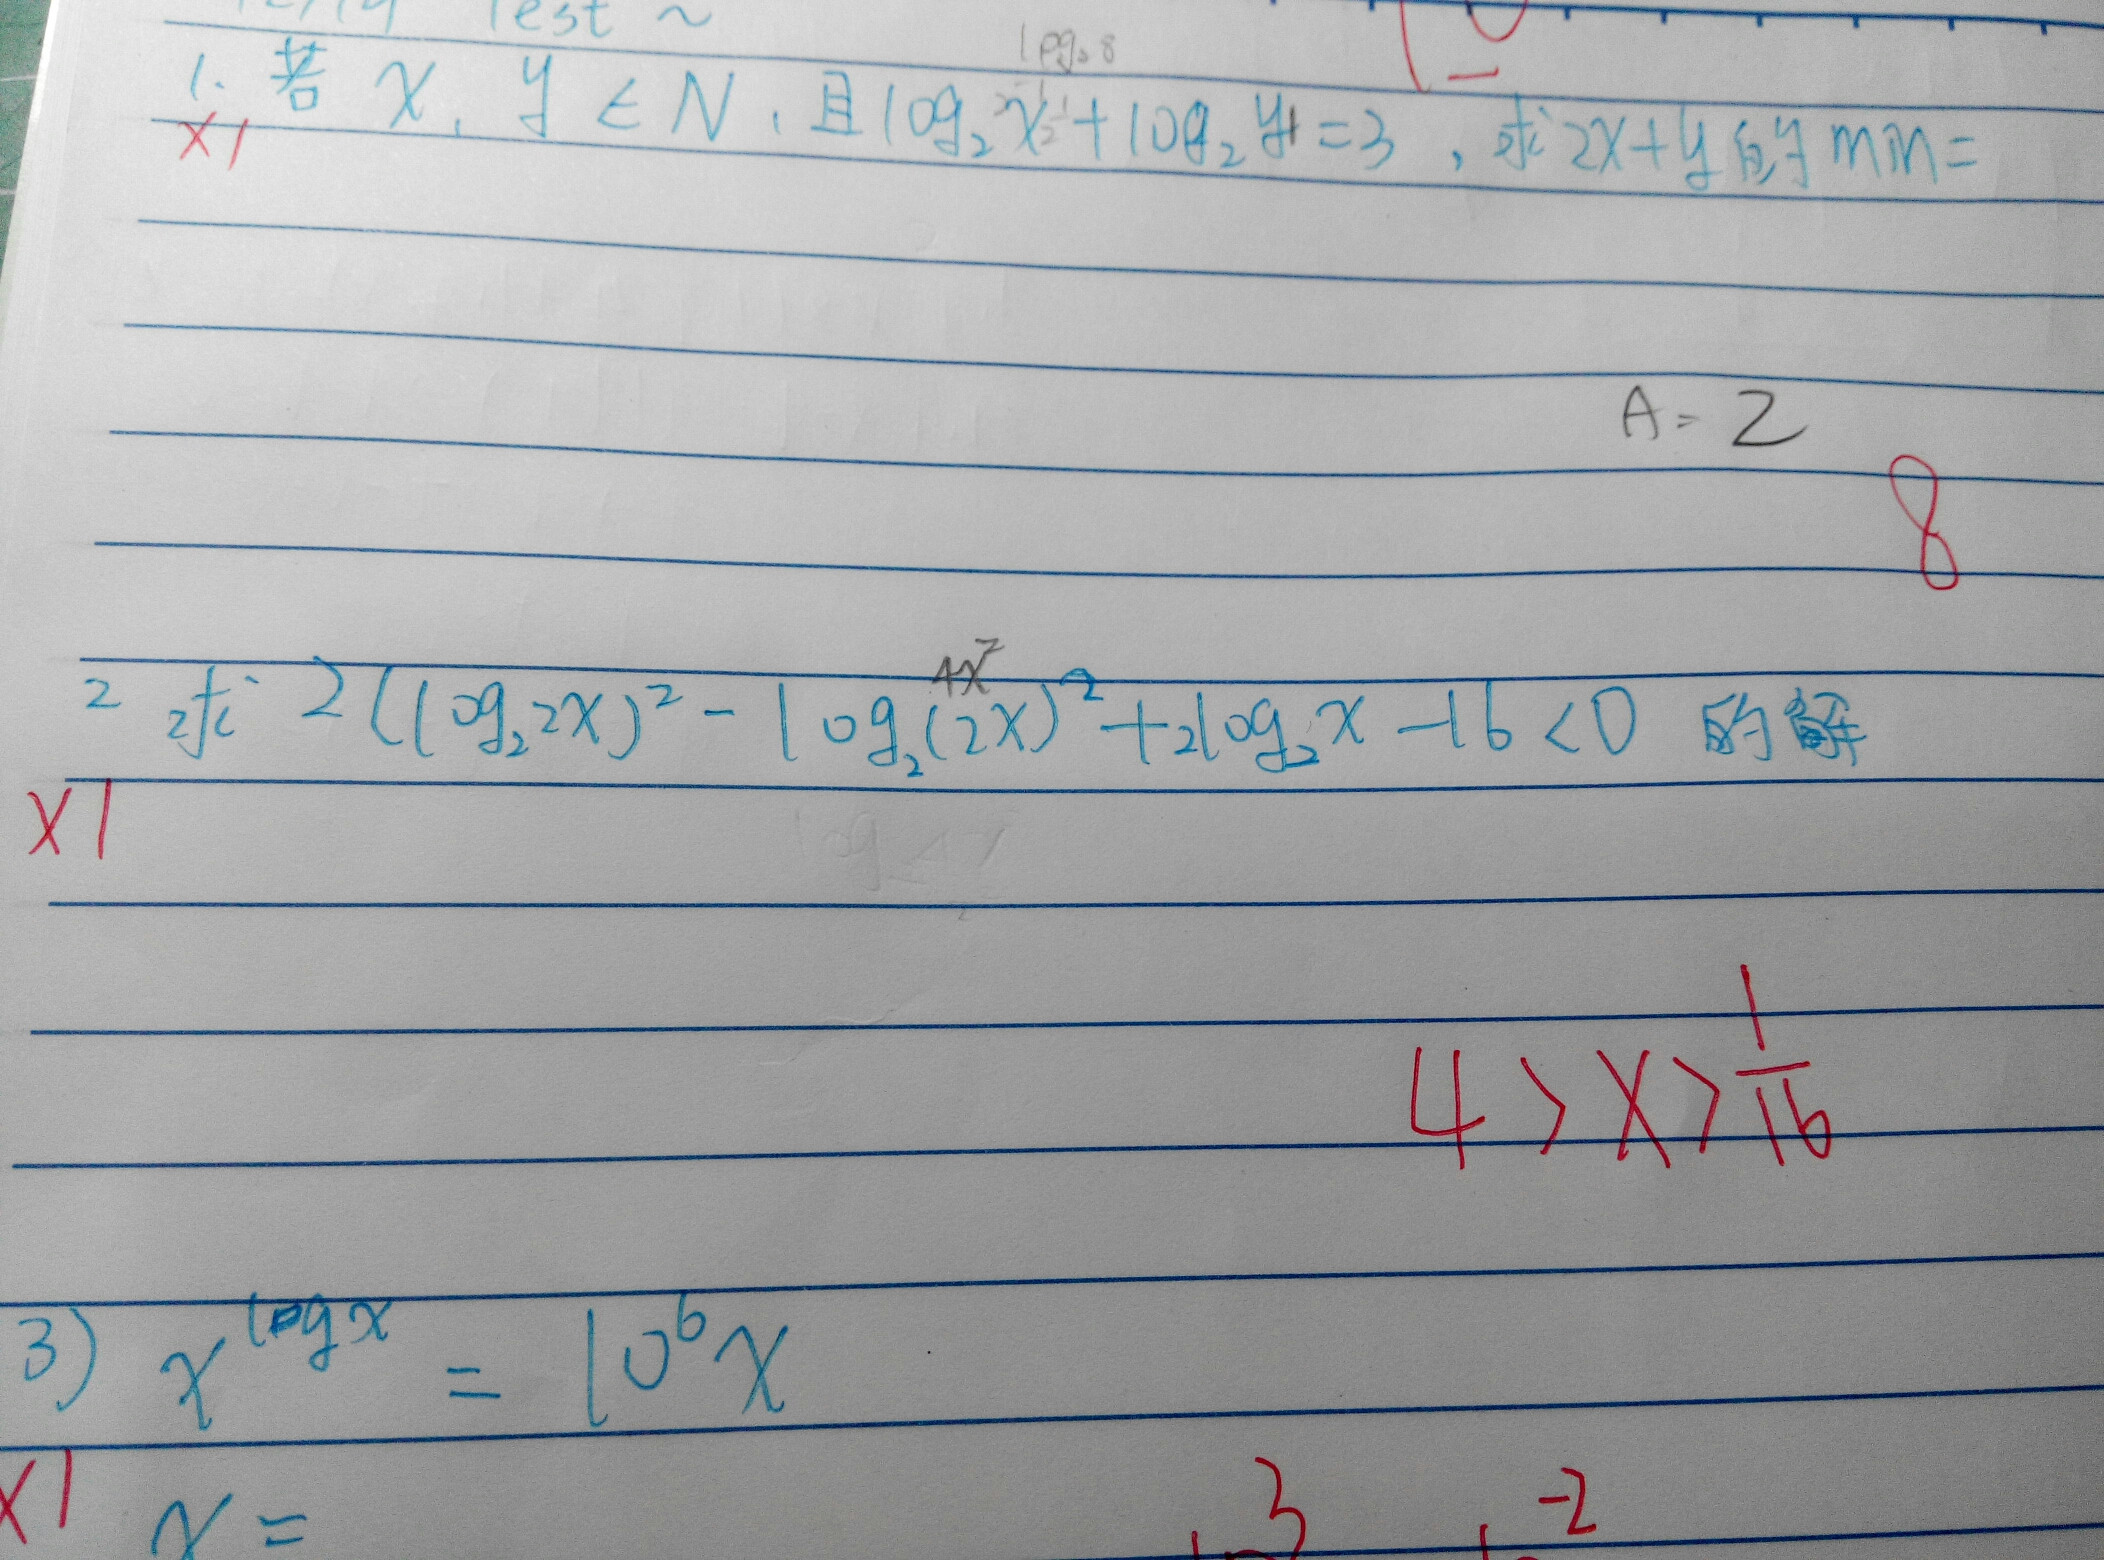 Test ~
log₂8
1. 若 x, y ∈ N, 且 log₂x + log₂y = 3, 求 2x+y 的 min =
x1
A = 2
8
4x²
2 求 2(log₂2x)² - log₂(2x)² + 2log₂x - 16 < 0 的解
x1
4 > x > 1/16
3) x^logx = 10⁶x
x1 x =
3 -2